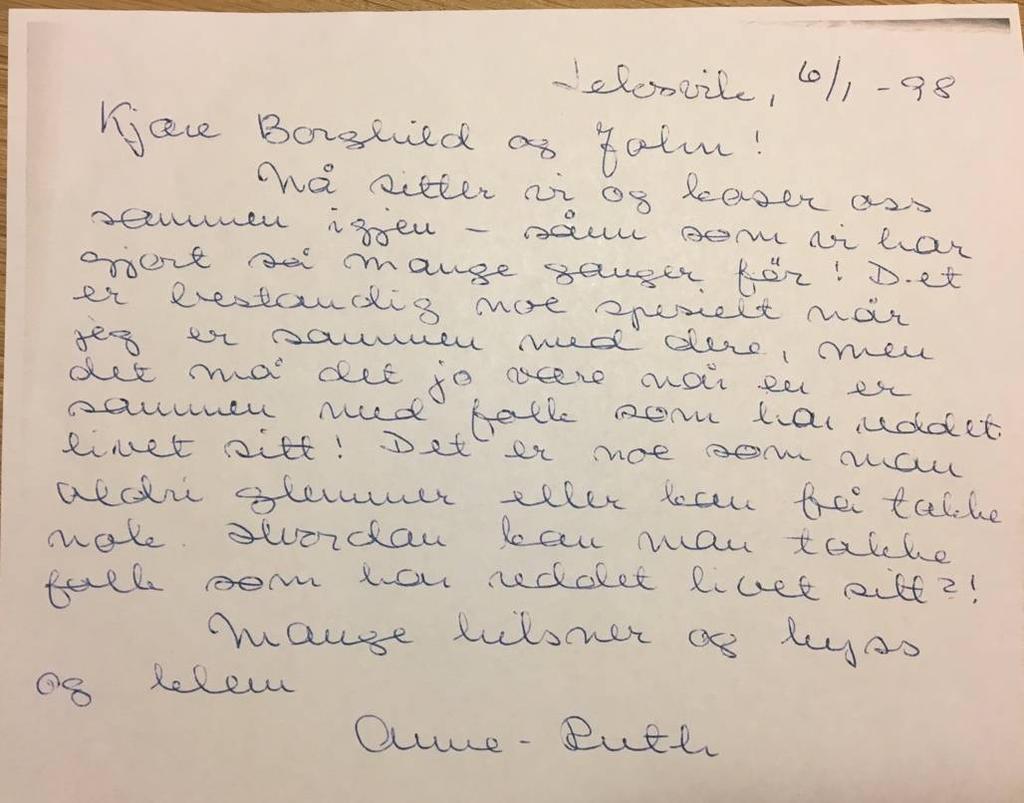 Jelosvik, 6/1 - 98
Kjære Borghild og John!
Nå sitter vi og koser oss
sammen igjen - sånn som vi har
gjort så mange ganger før! Det
er bestandig noe spesielt når
jeg er sammen med dere, men
det må det jo være når en er
sammen med folk som har reddet
livet sitt! Det er noe som man
aldri glemmer eller kan få takke
nok. Hvordan kan man takke
folk som har reddet livet sitt?!
Mange hilsner og kyss
og klem
Anne-Ruth